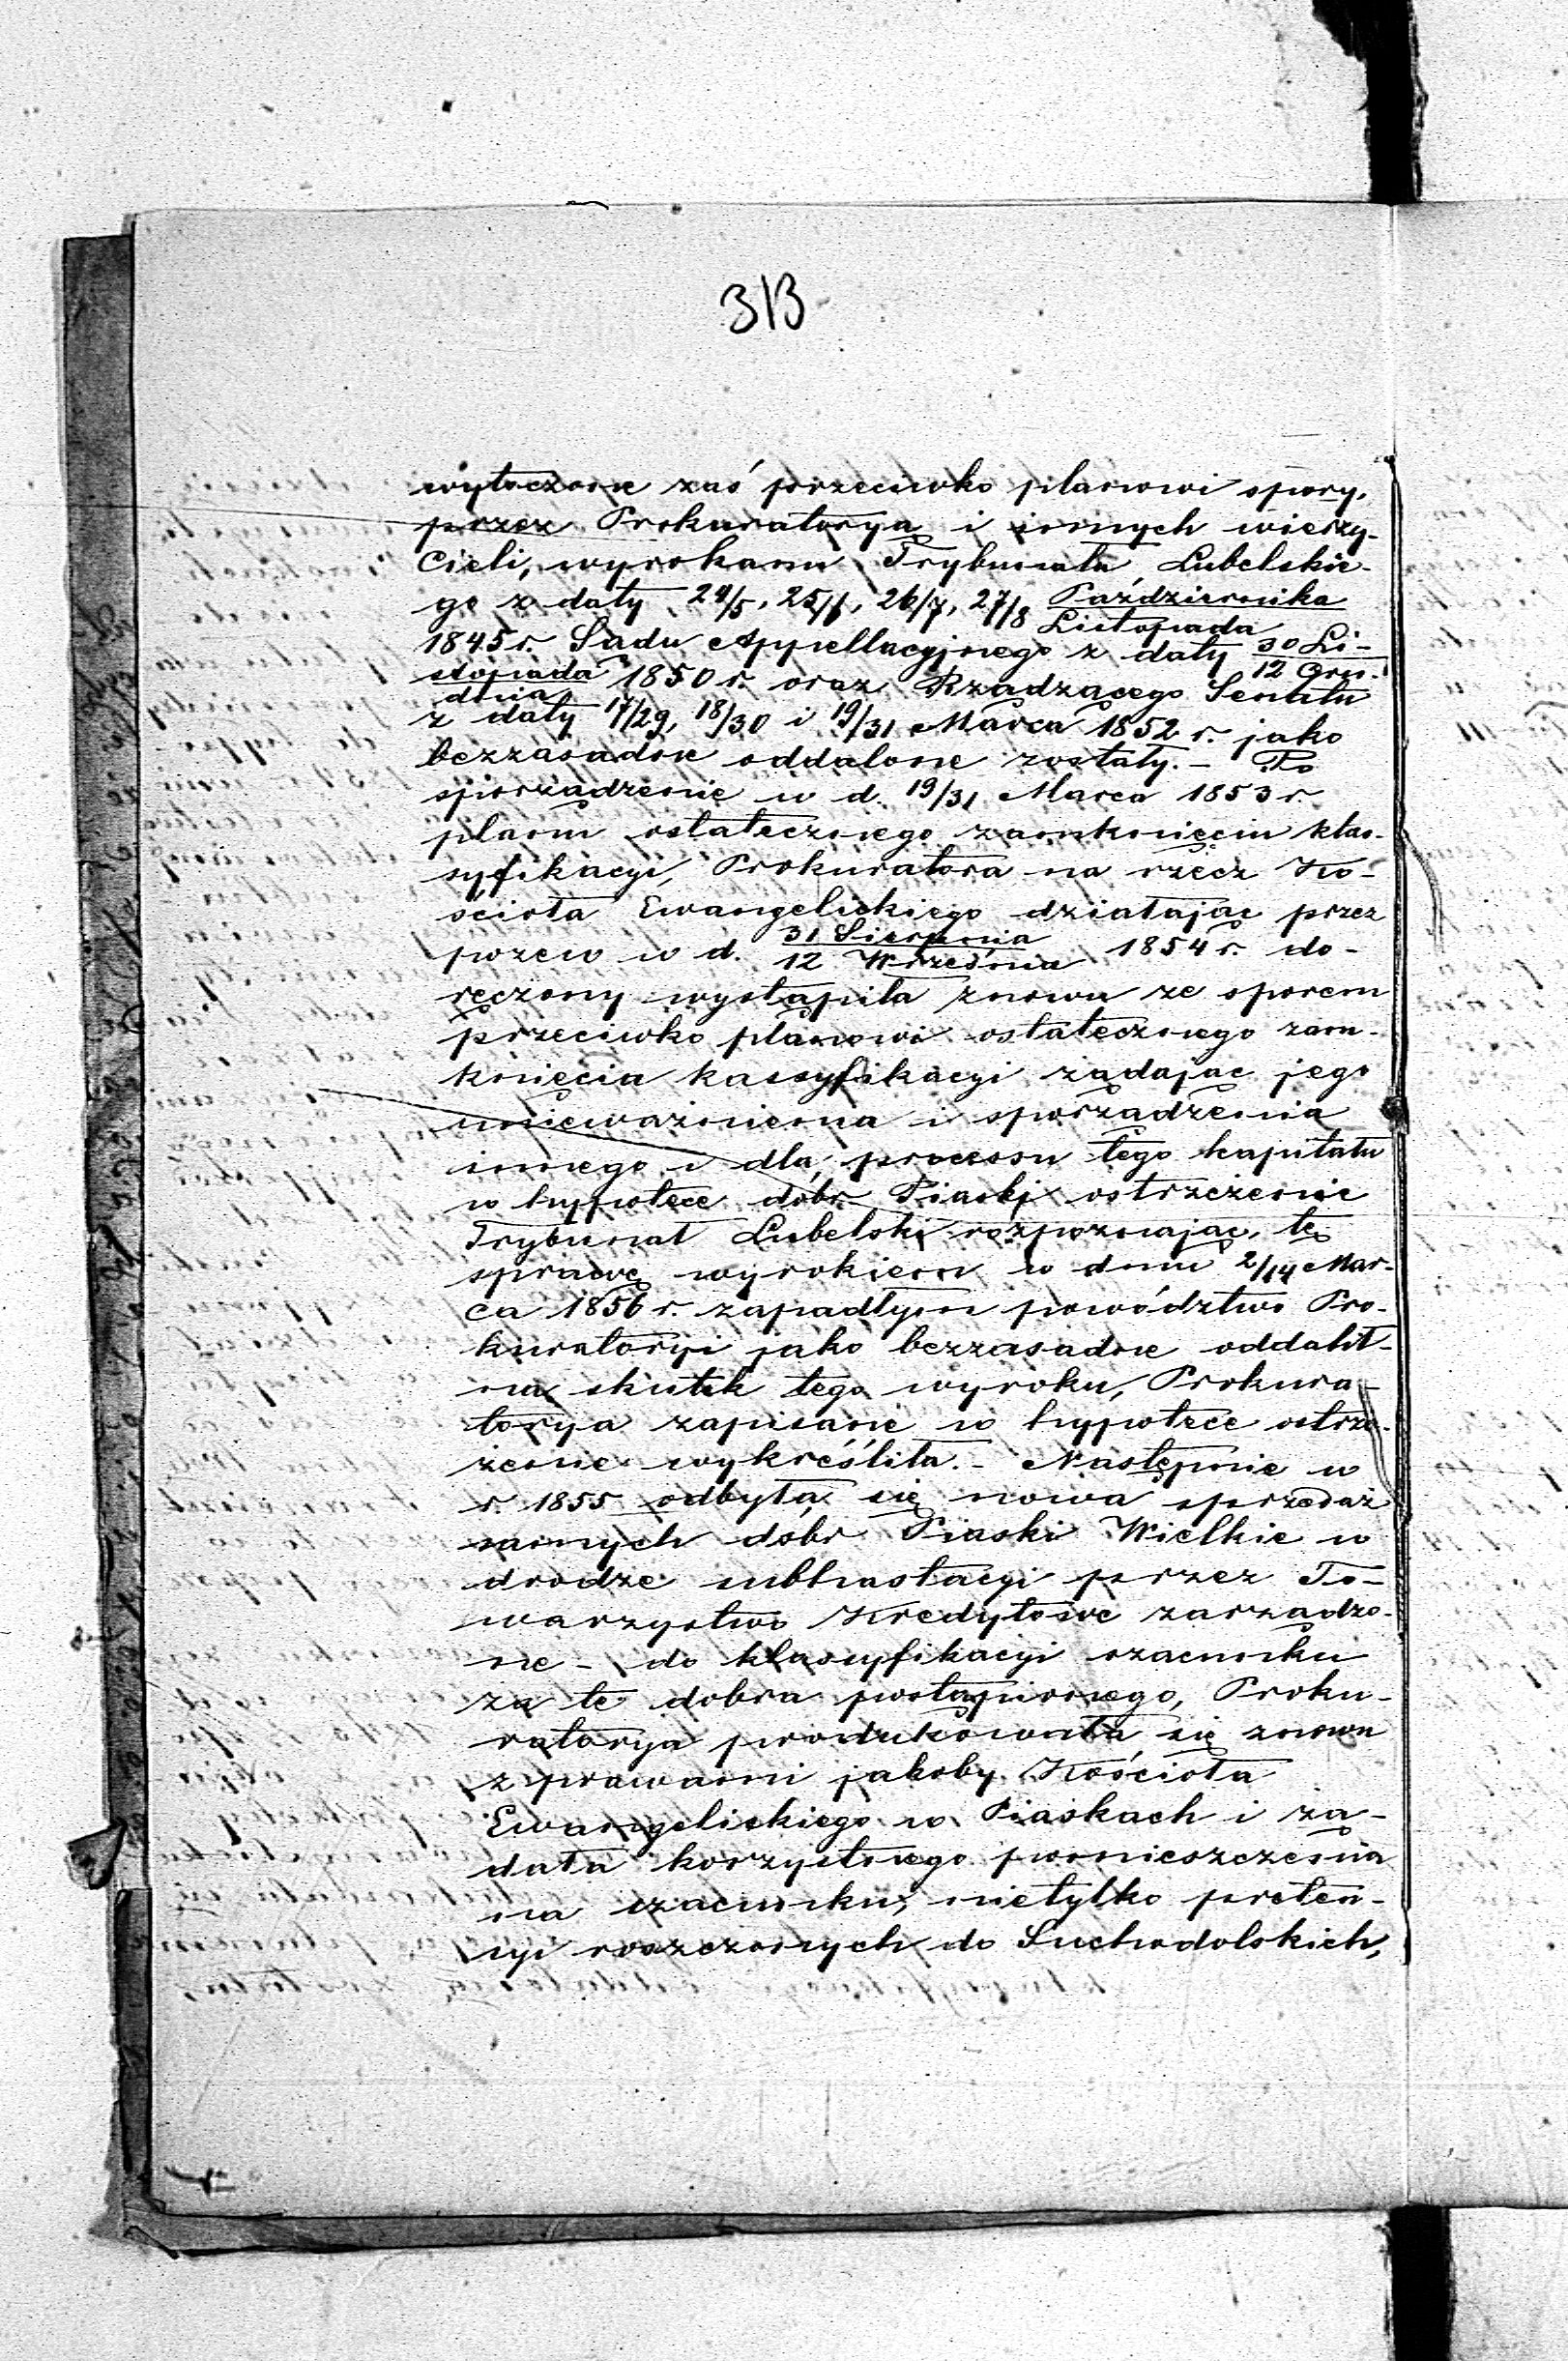 313
wytoczone zaś przeciwko planowi spory,
przez Prokuratoryą i innych wierzy-
cieli, wyrokami Trybunału Lubelskie-
go z daty 24/5, 25/6, 26/7, 27/8 Października
Listopada
1845 r. Sądu Appellacyjnego z daty 30 Li-
stopada 12 Gru-
dnia 1850 r. oraz Rządzącego Senatu
z daty 17/29, 18/30 i 19/31 Marca 1852 r. jako
bezzasadne oddalone zostały. – Po
sporządzenie w d. 19/31 Marca 1853 r.
planu ostatecznego zamknięcia klas-
syfikacyi, Prokuratora na rzecz Ko-
ścioła Ewangelickiego działając przez
pozew w d. 31 Sierpnia
12 Września 1854 r. do-
ręczony wystąpiła znowu ze sporem
przeciwko planowi ostatecznego zam-
knięcia kassyfikacyi żądając jego
unieważnienia i sporządzenia
innego i dla processu tego kapitału
w hypotece dóbr Piaski ostrzeżenie
Trybunał Lubelski rozpoznając, tę
sprawę wyrokiem w dniu 2/14 Mar-
ca 1856 r. zapadłym powództwo Pro-
kuratoryi jako bezzasadne oddalił –
na skutek tego wyroku, Prokura-
torya zapisane w hypotece ostrze-
żenie wykreśliła. – Następnie w
r. 1855 odbyła się nowa sprzedaż
samych dóbr Piaski Wielkie w
drodze subhastacyi przez To-
warzystwo Kredytowe zarządzo-
ne – do klassyfikacyi szacunku
za te dobra postąpionego, Proku-
ratorya produkowała się znowu
z prawami jakoby Kościoła
Ewangelickiego w Piaskach i żą-
dała korzystnego pomieszczenia
na szacunku, nietylko preten-
syi roszczonych do Suchodolskich,